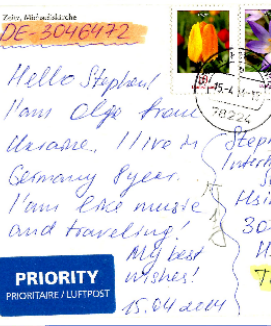 Zeitz, Michaeliskirche
DE-3046472
Hello Stephen!
I'am Olga from
Ukraine, I live in
Germany 8 year.
I'am like music
and traveling!
My best
wishes!
15.04 2014
PRIORITY
PRIORITAIRE / LUFTPOST
Steph
Hsin
30